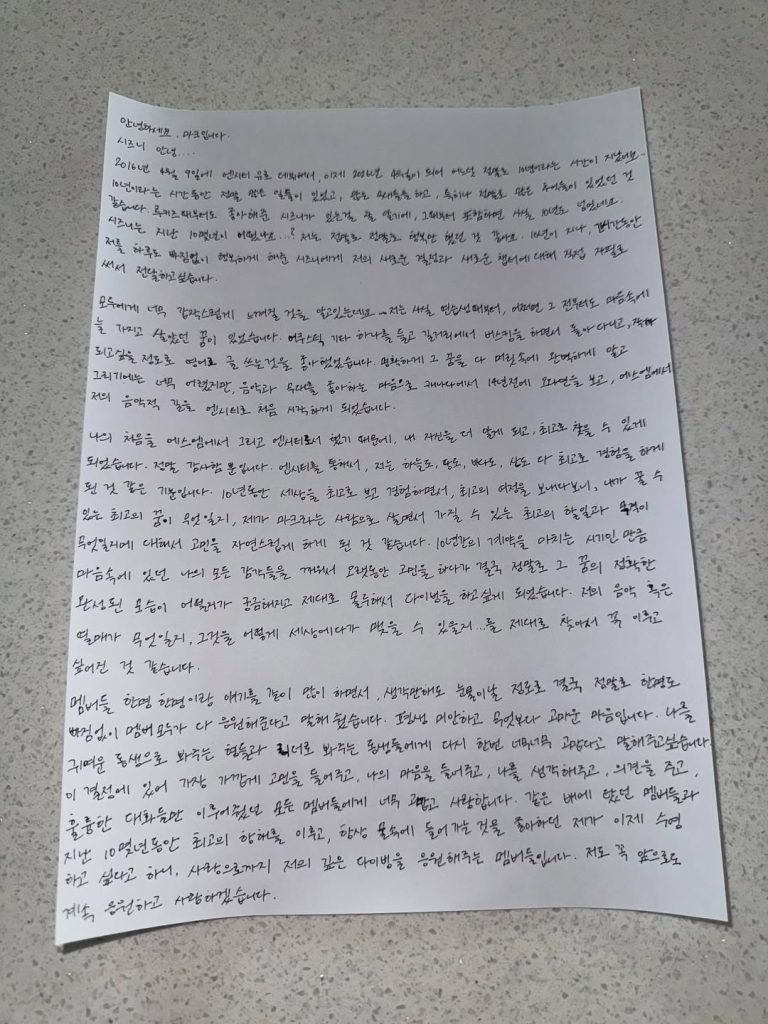 안녕하세요, 마크입니다.
시즈니 안녕....
2016년 4월 9일에 엔시티 유로 데뷔해서, 이제 2026년 4월이 되어 어느덧 정말로 10년이라는 시간이 지났네요..
10년이라는 시간동안 정말 많은 일들이 있었고, 많은 무대들을 하고, 특히나 정말로 많은 추억들이 있었던 것
같습니다. 루키즈 때부터도 좋아해준 시즈니가 있는걸 잘 알기에, 그때부터 포함하면 사실 10년도 넘었네요.
시즈니는 지난 10몇년이 어땠나요...? 저는 정말로 정말로 행복만 했던 것 같아요. 10년이 지나, 긴 시간동안
저를 하루도 빠짐없이 행복하게 해준 시즈니에게 저의 새로운 결정과 새로운 챕터에 대해 직접 자필로
써서 전달하고싶습니다.
모두에게 너무 갑작스럽게 느껴질 것을 알고있는데요.. 저는 사실 연습생때부터, 어쩌면 그 전부터도 마음속에
늘 가지고 살았던 꿈이 있었습니다. 어쿠스틱 기타 하나를 들고 길거리에서 버스킹을 하면서 돌아다니고, 작가
되고싶을 정도로 영어로 글 쓰는것을 좋아했었습니다. 명확하게 그 꿈을 다 머릿속에 완벽하게 알고
그리기에는 너무 어렸지만, 음악과 무대를 좋아하는 마음으로 캐나다에서 14년전에 오디션을 보고, 에스엠에서
저의 음악적 길을 엔시티로 처음 시작하게 되었습니다.
나의 처음을 에스엠에서 그리고 엔시티로서 했기 때문에, 내 자신을 더 알게 되고, 최고로 찾을 수 있게
되었습니다. 정말 감사할 뿐입니다. 엔시티를 통해서, 저는 하늘도, 땅도, 바다도, 산도 다 최고로 경험을 하게
된 것 같은 기분입니다. 10년동안 세상을 최고로 보고 경험하면서, 최고의 여정을 보내다보니, 내가 꿀 수
있는 최고의 꿈이 무엇일지, 제가 마크라는 사람으로 살면서 가질 수 있는 최고의 할일과 목적이
무엇일지에 대해서 고민을 자연스럽게 하게 된 것 같습니다. 10년간의 계약을 마치는 시기인 만큼
마음속에 있던 나의 모든 감각들을 깨워서 오랫동안 고민을 하다가 결국 정말로 그 꿈의 정확한
완성된 모습이 어떨지가 궁금해지고 제대로 몰두해서 다이빙을 하고싶게 되었습니다. 저의 음악 혹은
열매가 무엇일지, 그것을 어떻게 세상에다가 맺을 수 있을지...를 제대로 찾아서 꼭 이루고
싶어진 것 같습니다.
멤버들 한명 한명이랑 얘기를 같이 많이 하면서, 생각만해도 눈물이날 정도로 결국 정말로 한명도
빠짐없이 멤버 모두가 다 응원해준다고 말해 줬습니다. 평생 미안하고 무엇보다 고마운 마음입니다. 나를
귀여운 동생으로 봐주는 형들과 리더로 봐주는 동생들에게 다시 한번 너무너무 고맙다고 말해주고싶습니다.
이 결정에 있어 가장 가깝게 고민을 들어주고, 나의 마음을 들어주고, 나를 생각해주고, 의견을 주고,
훌륭한 대화들만 이루어줬던 모든 멤버들에게 너무 고맙고 사랑합니다. 같은 배에 탔던 멤버들과
지난 10몇년동안 최고의 항해를 이루고, 항상 물속에 들어가는 것을 좋아하던 제가 이제 수영
하고 싶다고 하니, 사랑으로까지 저의 깊은 다이빙을 응원해주는 멤버들입니다. 저도 꼭 앞으로도
계속 응원하고 사랑하겠습니다.